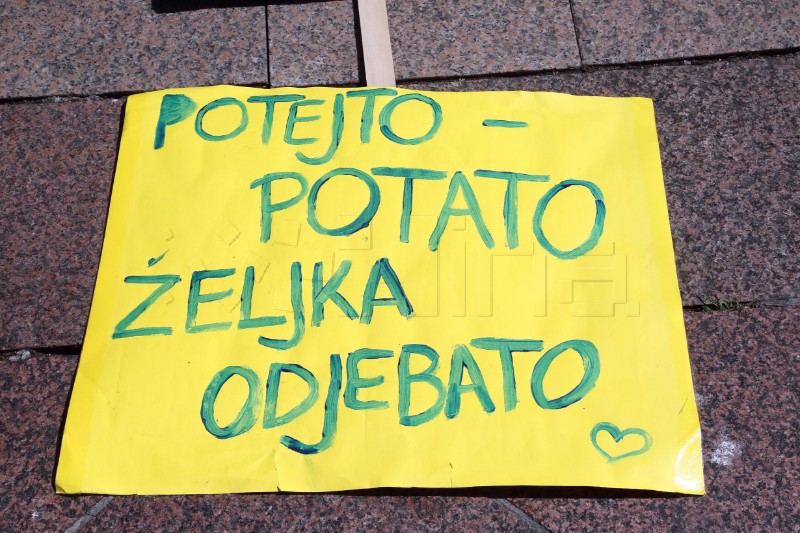 POTEJTO -
POTATO
ŽELJKA
ODJEBATO